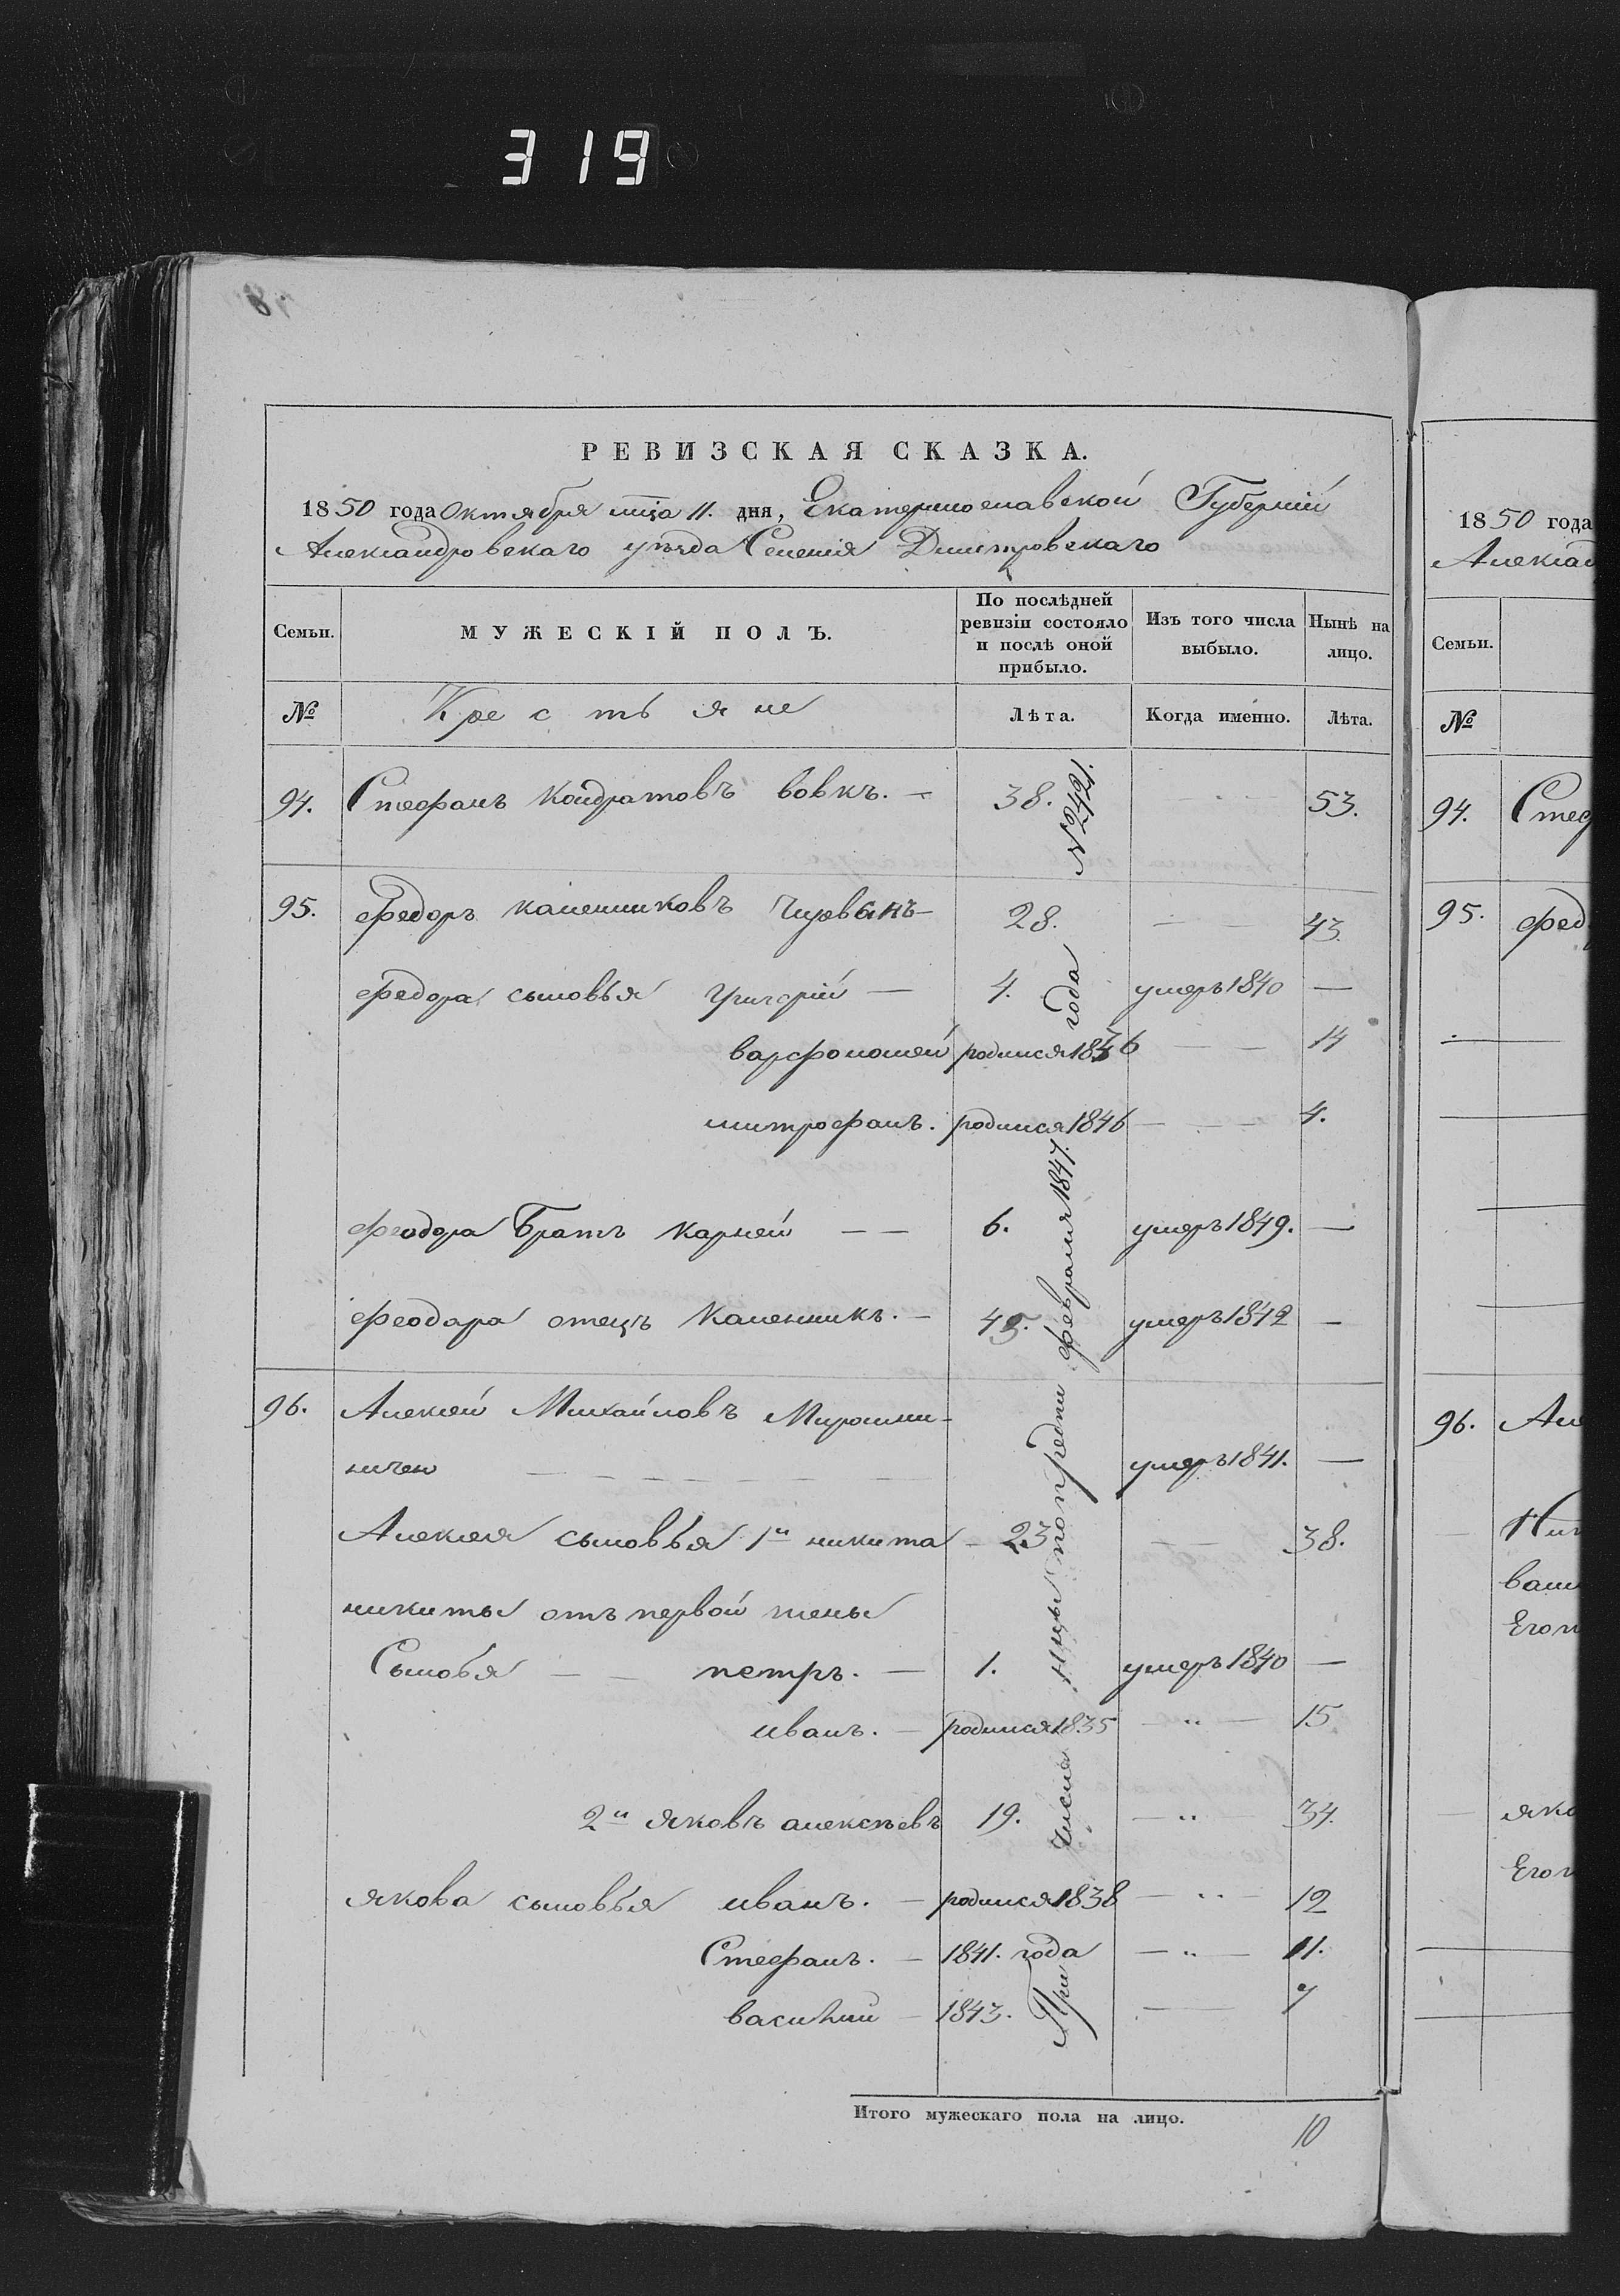 319
РЕВИЗСКАЯ СКАЗКА.
1850 года Октября мца 11. дня, Екатеринославской Губерніи
Александровскаго уѣзда Селенія Дмитровскаго
Семьи.
МУЖЕСКІЙ ПОЛЪ.
По послѣдней ревизіи состояло и послѣ оной прибыло.
Изъ того числа выбыло.
Нынѣ на лицо.
№ Крестьяне Лѣта. Когда именно. Лѣта.
94. Стефанъ Кондратовъ вовкъ. — 38. 53.
95. Федоръ каленниковъ 28. — — 43.
Федора сыновья Григорій — 4. умеръ 1840 —
варфоломей родился 1836 — — 14
митрофанъ. родился 1846 — — 4.
феодора Братъ Карней — — 6. умеръ 1849. —
феодора отецъ Каленникъ. — 45. умеръ 1842 —
96. Алексѣй Михайловъ Мирошни-
ничен — — — — — — умеръ 1841. —
Алексея сыновья 1й никита — 23 — — 38.
никиты отъ первой жены
Сыновя — — петръ. — 1. умеръ 1840 —
иванъ. — родился 1835 — „ — 15
2й яковъ алексѣевъ 19. — „ — 34.
якова сыновья иванъ. — родился 1838 — „ — 12
Стефанъ. — 1841. года — „ — 11.
василий — 1843. — 7
При числя февраля 1847. года №2421.
Итого мужескаго пола на лицо. 10
1850 года
Семьи.
№
94.
95.
96.